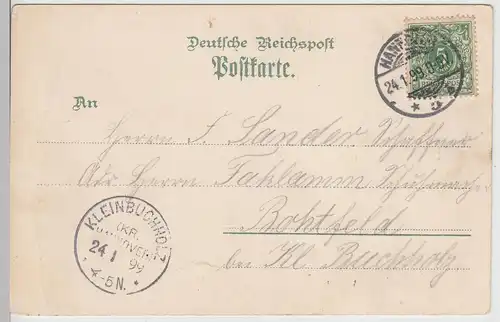 Deutsche Reichspost
Postkarte.
HANNOVER
24.1.99
5
An
Herrn F. Sander Schaffner
Adr Herrn Fahlamm Schuhmach.
Bothfeld
bei Kl. Buchholz
KLEINBUCHHOLZ
(KR. HANNOVER)
24 1 99
4-5N.